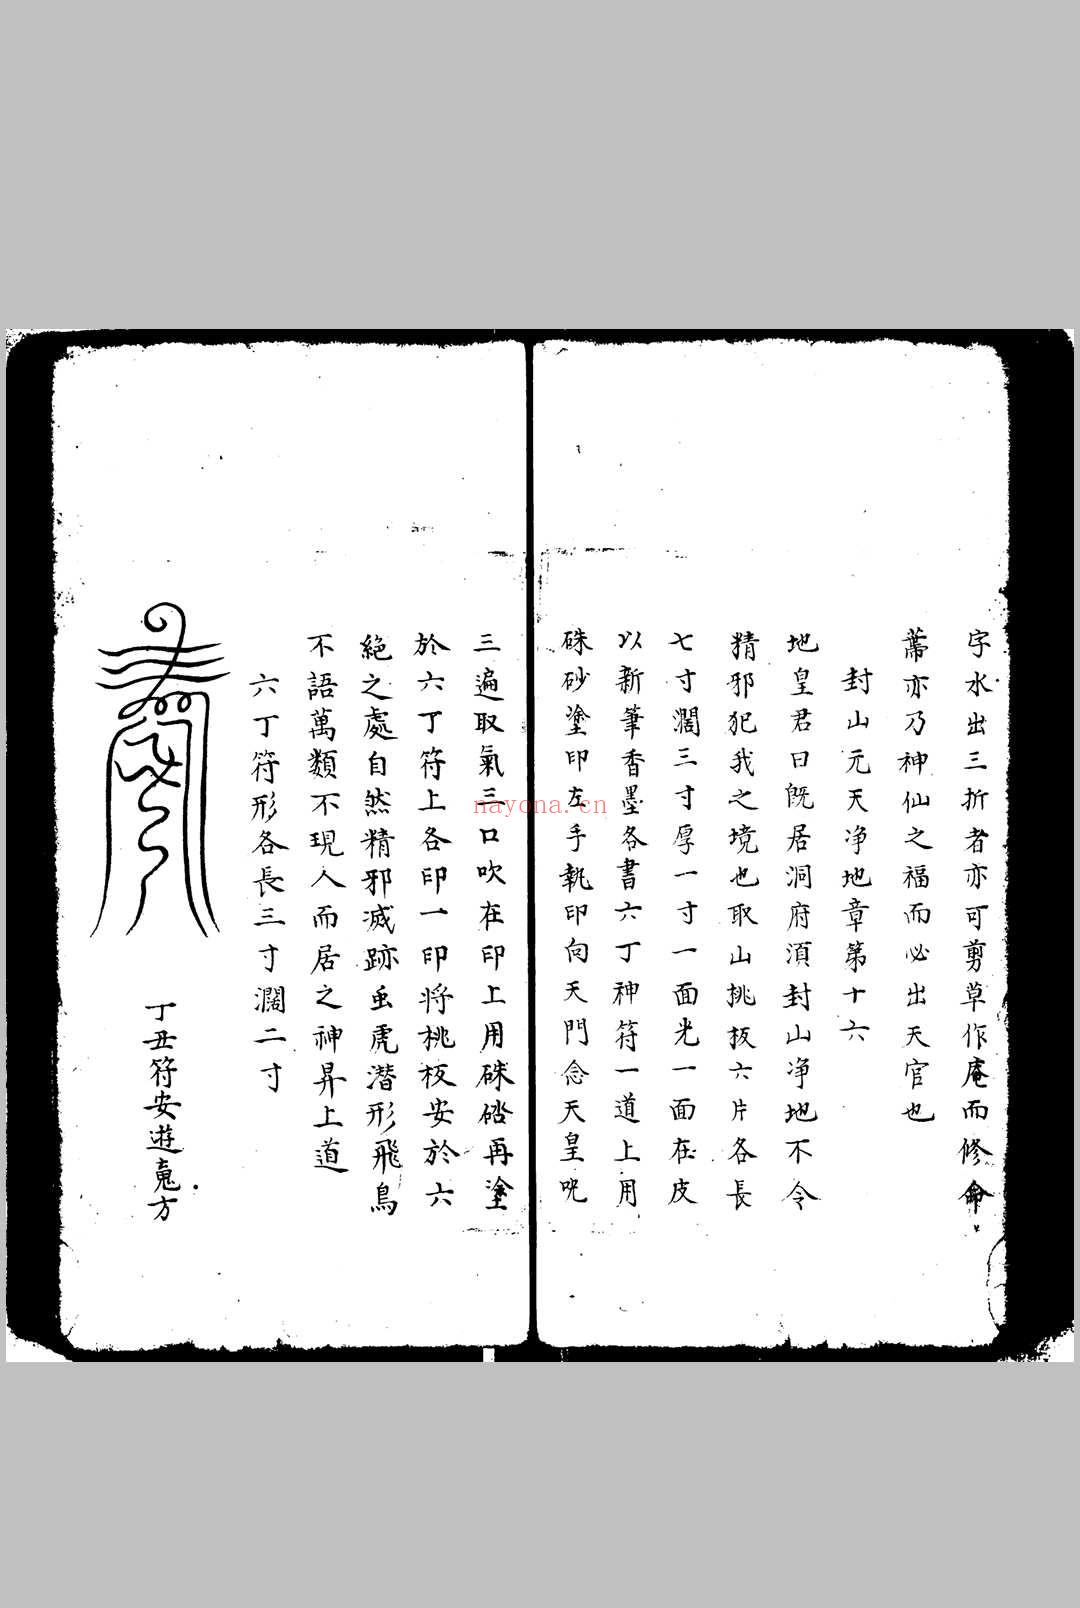 字水出三折者亦可剪草作庵而修命
薷亦乃神仙之福而必出天官也
封山元天净地章第十六
地皇君曰既居洞府須封山净地不令
精邪犯我之境也取山桃板六片各長
七寸濶三寸厚一寸一面光一面在皮
以新筆香墨各書六丁神符一道上用
硃砂塗印左手執印向天門念天皇呪
三遍取氣三口吹在印上用硃砂再塗
於六丁符上各印一印将桃板安於六
絶之處自然精邪滅跡虫虎潜形飛鳥
不語萬類不現人而居之神昇上道
六丁符形各長三寸濶二寸
丁丑符安遊䰟方
nayona.cn